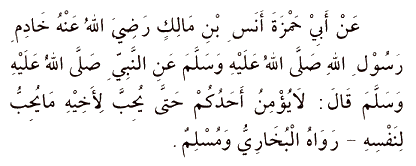 عَنْ أَبِيْ حَمْزَةَ أَنَسِ بْنِ مَالِكٍ رَضِيَ اللهُ عَنْهُ خَادِمِ
رَسُوْلِ اللهِ صَلَّى اللهُ عَلَيْهِ وَسَلَّمَ عَنِ النَّبِيِّ صَلَّى اللهُ عَلَيْهِ
وَسَلَّمَ قَالَ: لَايُؤْمِنُ أَحَدُكُمْ حَتَّى يُحِبَّ لِأَخِيْهِ مَايُحِبُّ
لِنَفْسِهِ – رَوَاهُ الْبُخَارِيُّ وَمُسْلِمٌ.